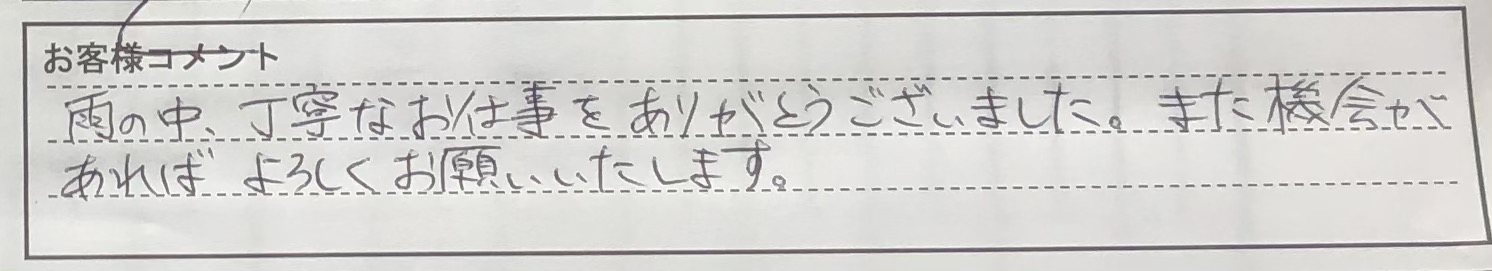 お客様コメント
雨の中、丁寧なお仕事をありがとうございました。また機会が
あればよろしくお願いいたします。